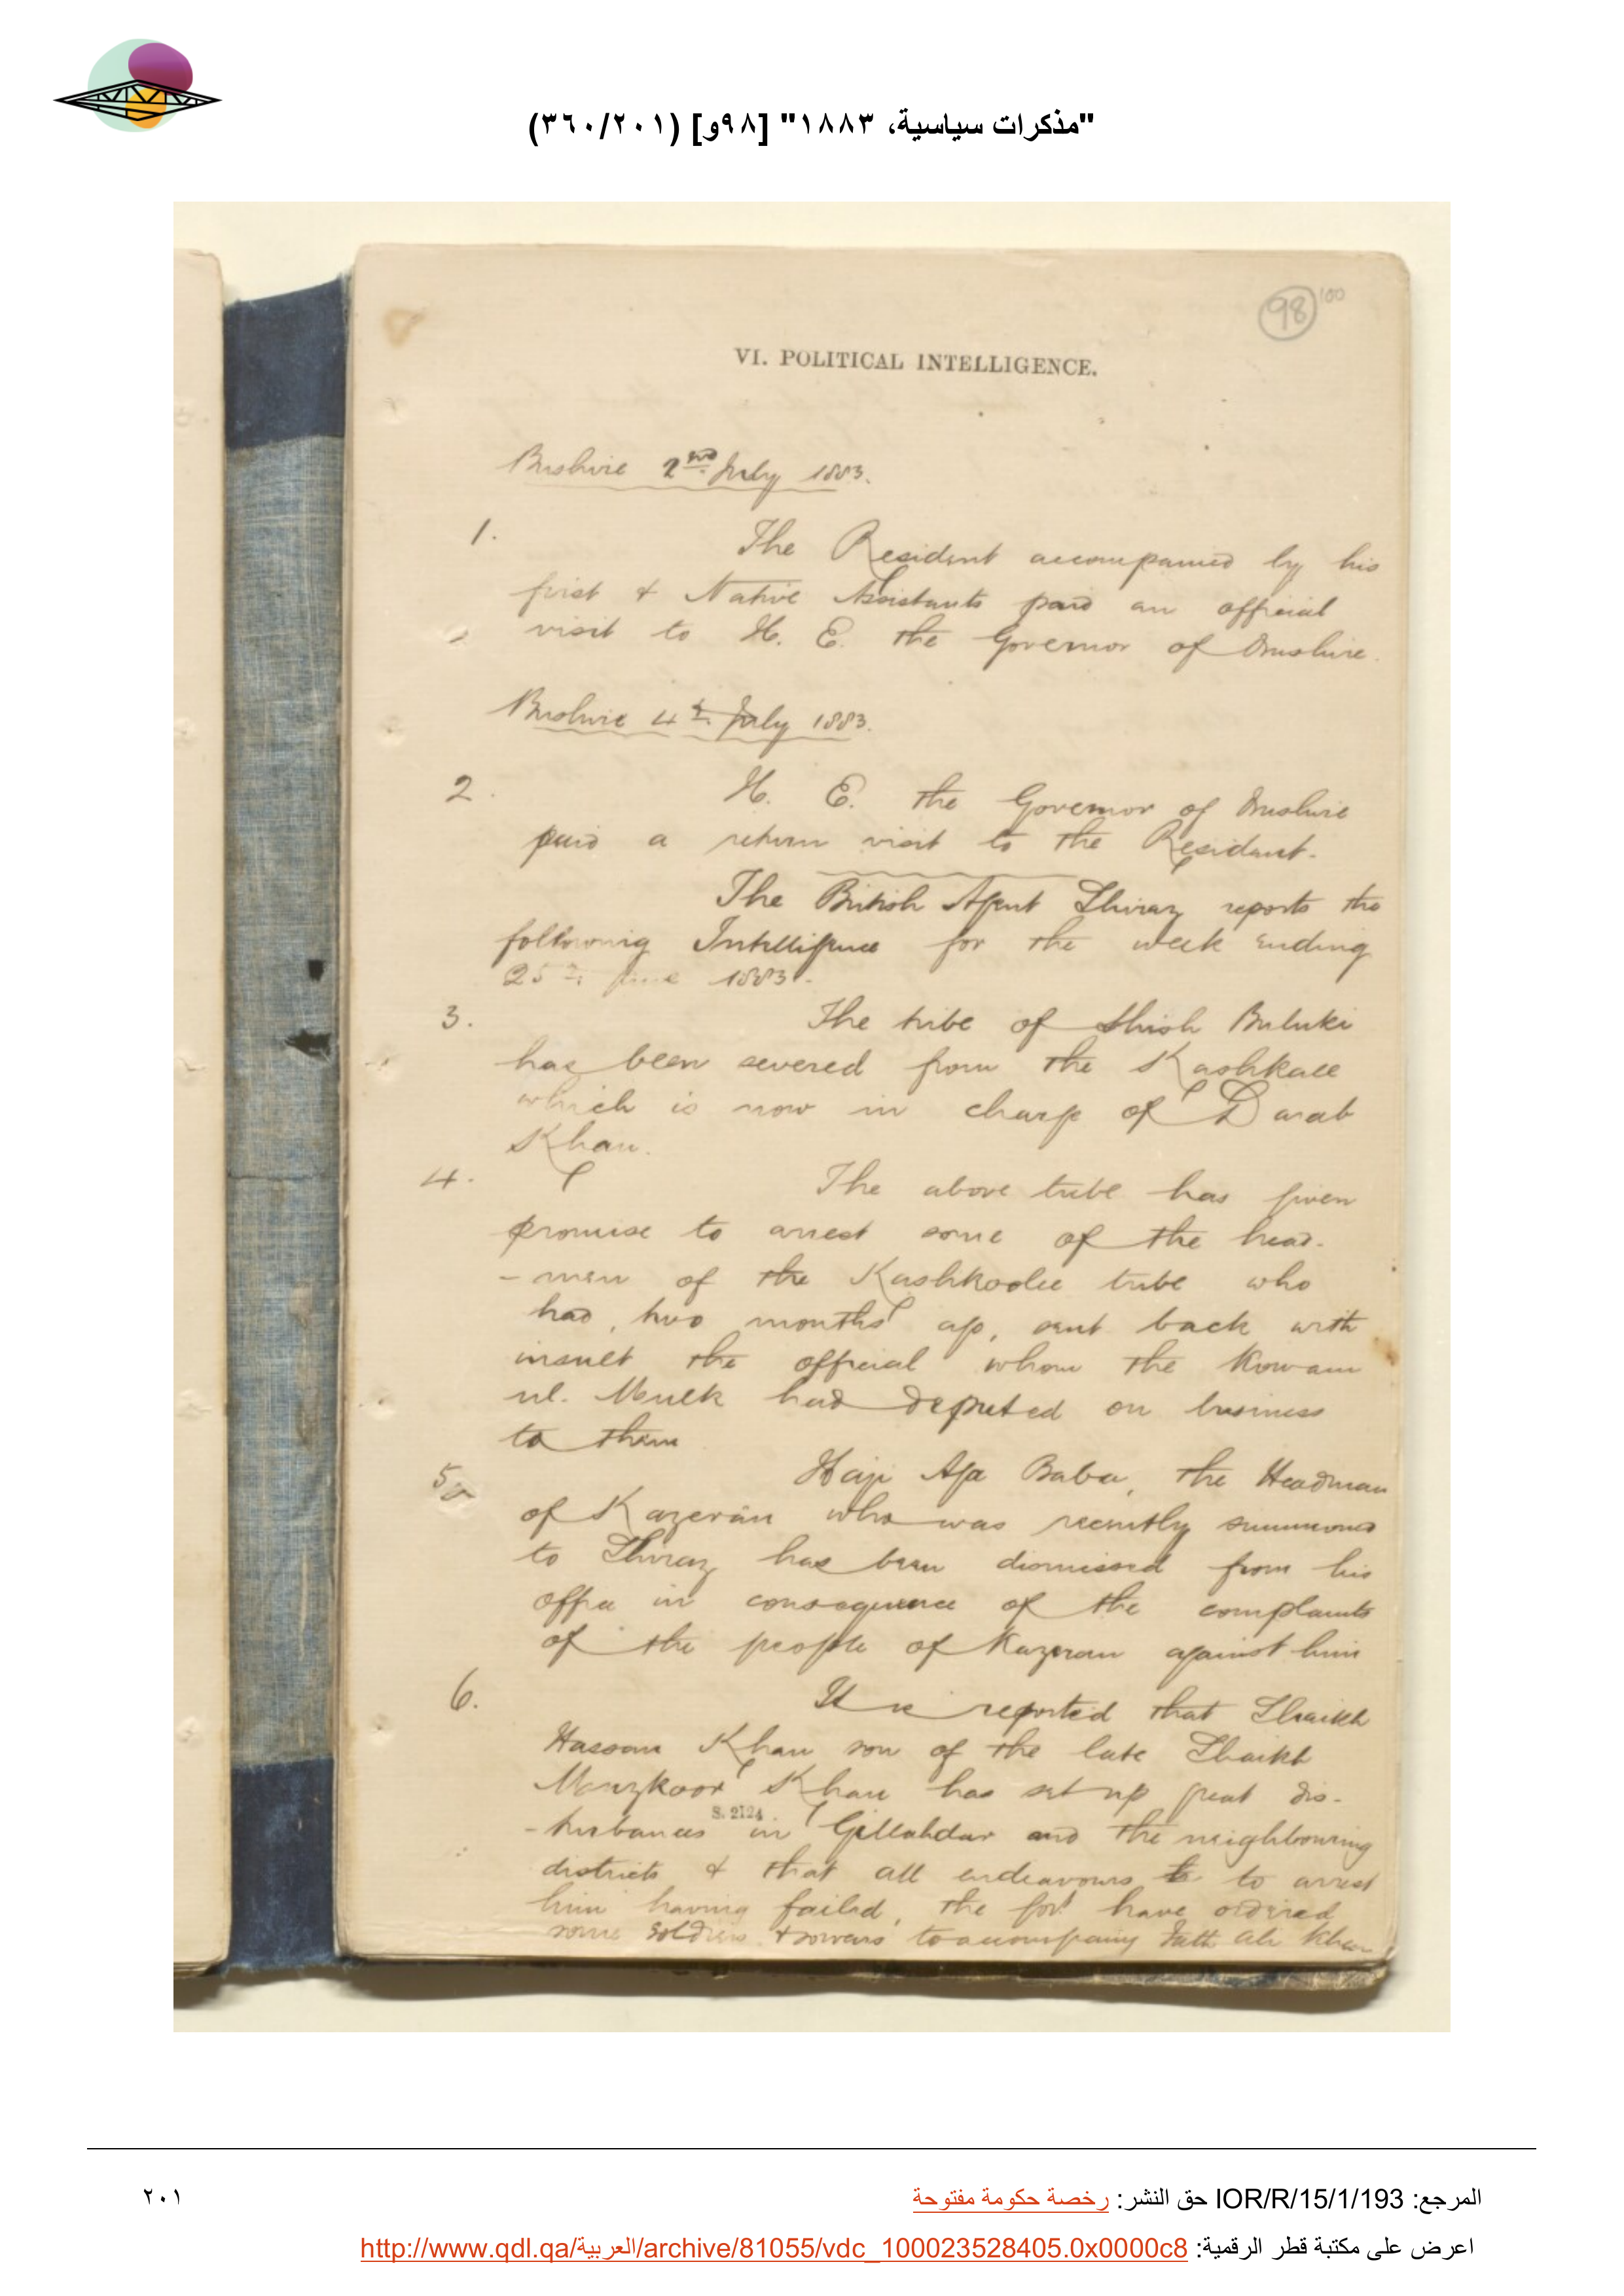 "مذكرات سياسية، ١٨٨٣" [٩٨و] (٣٦٠/٢٠١)
98 100
VI. POLITICAL INTELLIGENCE.
Bushire 2nd July 1883.
1. The Resident accompanied by his
first & Native Assistants paid an official
visit to H. E. the Governor of Bushire.
Bushire 4th July 1883.
2. H. E. the Governor of Bushire
paid a return visit to the Resident.
The British Agent Shiraz reports the
following Intelligence for the week ending
25th June 1883.
3. The tribe of Shish Buluki
has been severed from the Kashkaee
which is now in charge of Darab
Khan.
4. The above tribe has given
promise to arrest some of the head-
-men of the Kashkoolee tribe who
had, two months ago, sent back with
insult the official whom the Kowam
ul. Mulk had deputed on business
to them
5. Haji Aga Baba, the Headman
of Kazerân who was recently summoned
to Shiraz has been dismissed from his
office in consequence of the complaints
of the people of Kazeran against him
6. It is reported that Shaikh
Hassan Khan son of the late Shaikh
Mazkoor Khan has set up great dis-
-turbances in Gillahdar and the neighbouring
S. 2124.
districts & that all endeavours to to arrest
him having failed, the Govt have ordered
some soldiers & sowars to accompany Fath Ali Khan
المرجع: IOR/R/15/1/193 حق النشر: رخصة حكومة مفتوحة
٢٠١
اعرض على مكتبة قطر الرقمية: http://www.qdl.qa/العربية/archive/81055/vdc_100023528405.0x0000c8